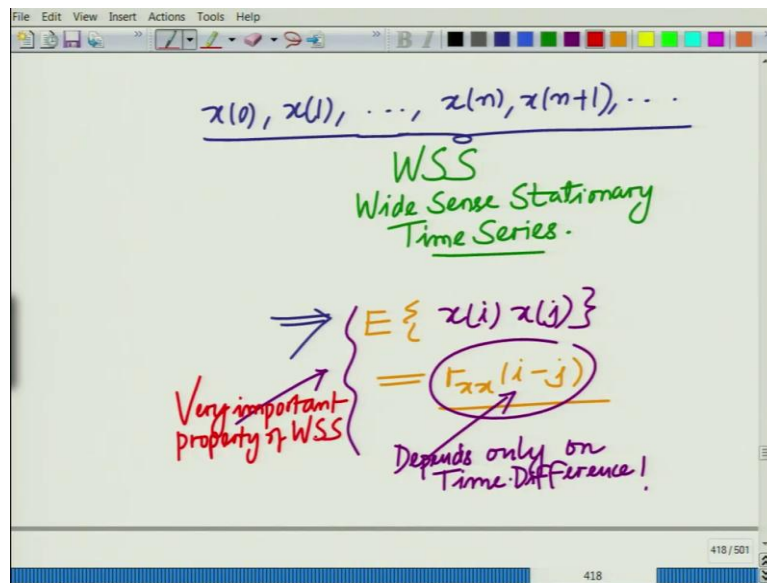 File Edit View Insert Actions Tools Help
B I
x(0), x(1), ..., x(n), x(n+1), ...
WSS
Wide Sense Stationary
Time Series.
⇒ { E { x(i) x(j) }
= r_xx(i-j)
Very important
property of WSS
Depends only on
Time Difference!
418 / 501
418